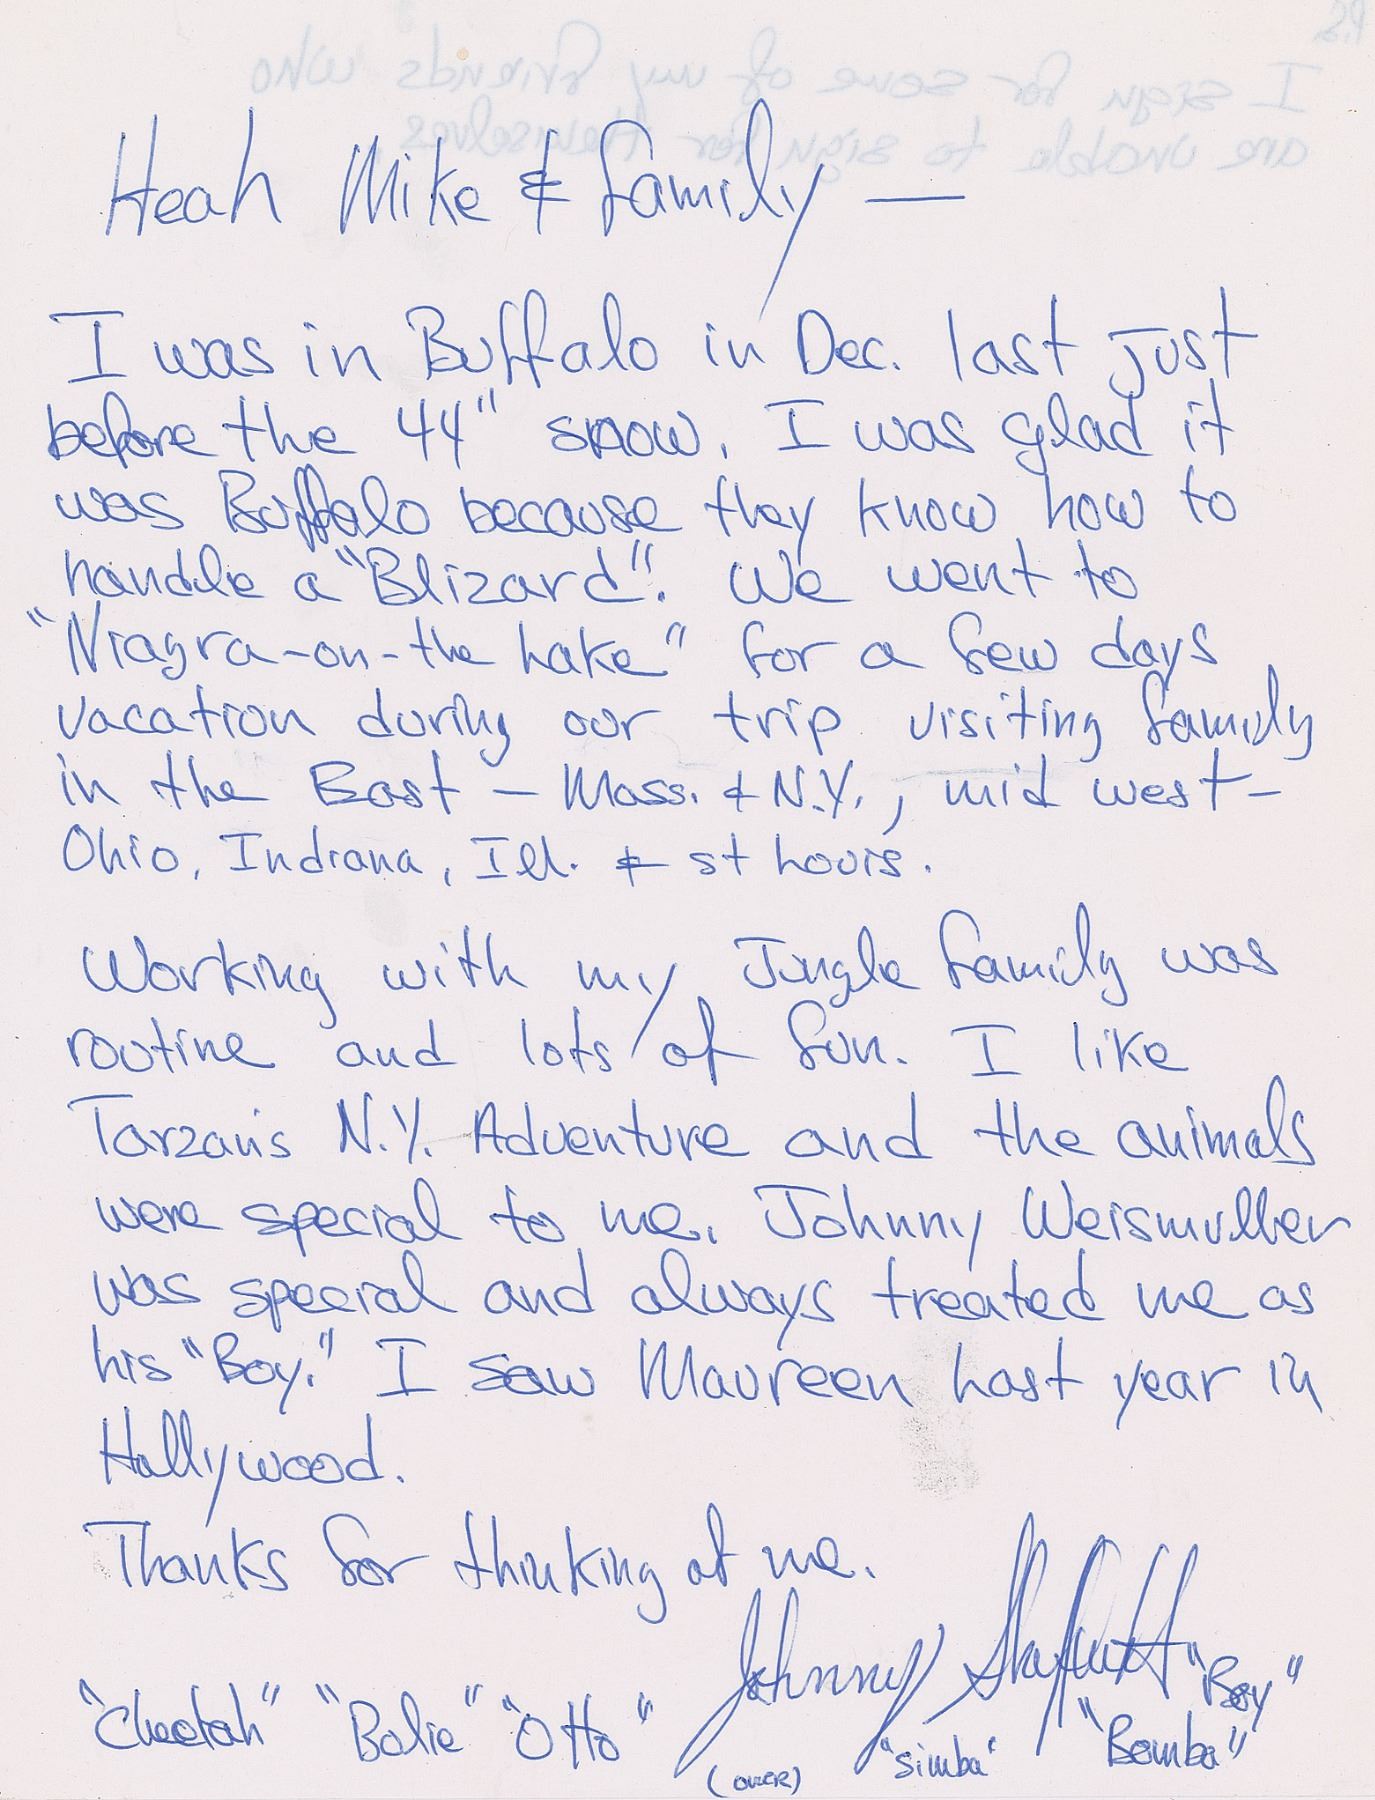 Heah Mike & family —
I was in Buffalo in Dec. last just
before the 44" snow. I was glad it
was Buffalo because they know how to
handle a "Blizard". We went to
"Niagra-on-the Lake" for a few days
vacation during our trip visiting family
in the East – Mass. & N.Y., mid west –
Ohio, Indiana, Ill. & st Louis.
Working with my Jungle family was
routine and lots of fun. I like
Tarzan's N.Y. Adventure and the animals
were special to me. Johnny Weismuller
was special and always treated me as
his "Boy." I saw Maureen Last year in
Hollywood.
Thanks for thinking of me.
Johnny Sheffield "Boy"
"Cheetah" "Bolie" "Otto" "simba" "Bomba"
(over)
P.S.
I sign for some of my friends who
are unable to sign for themselves.